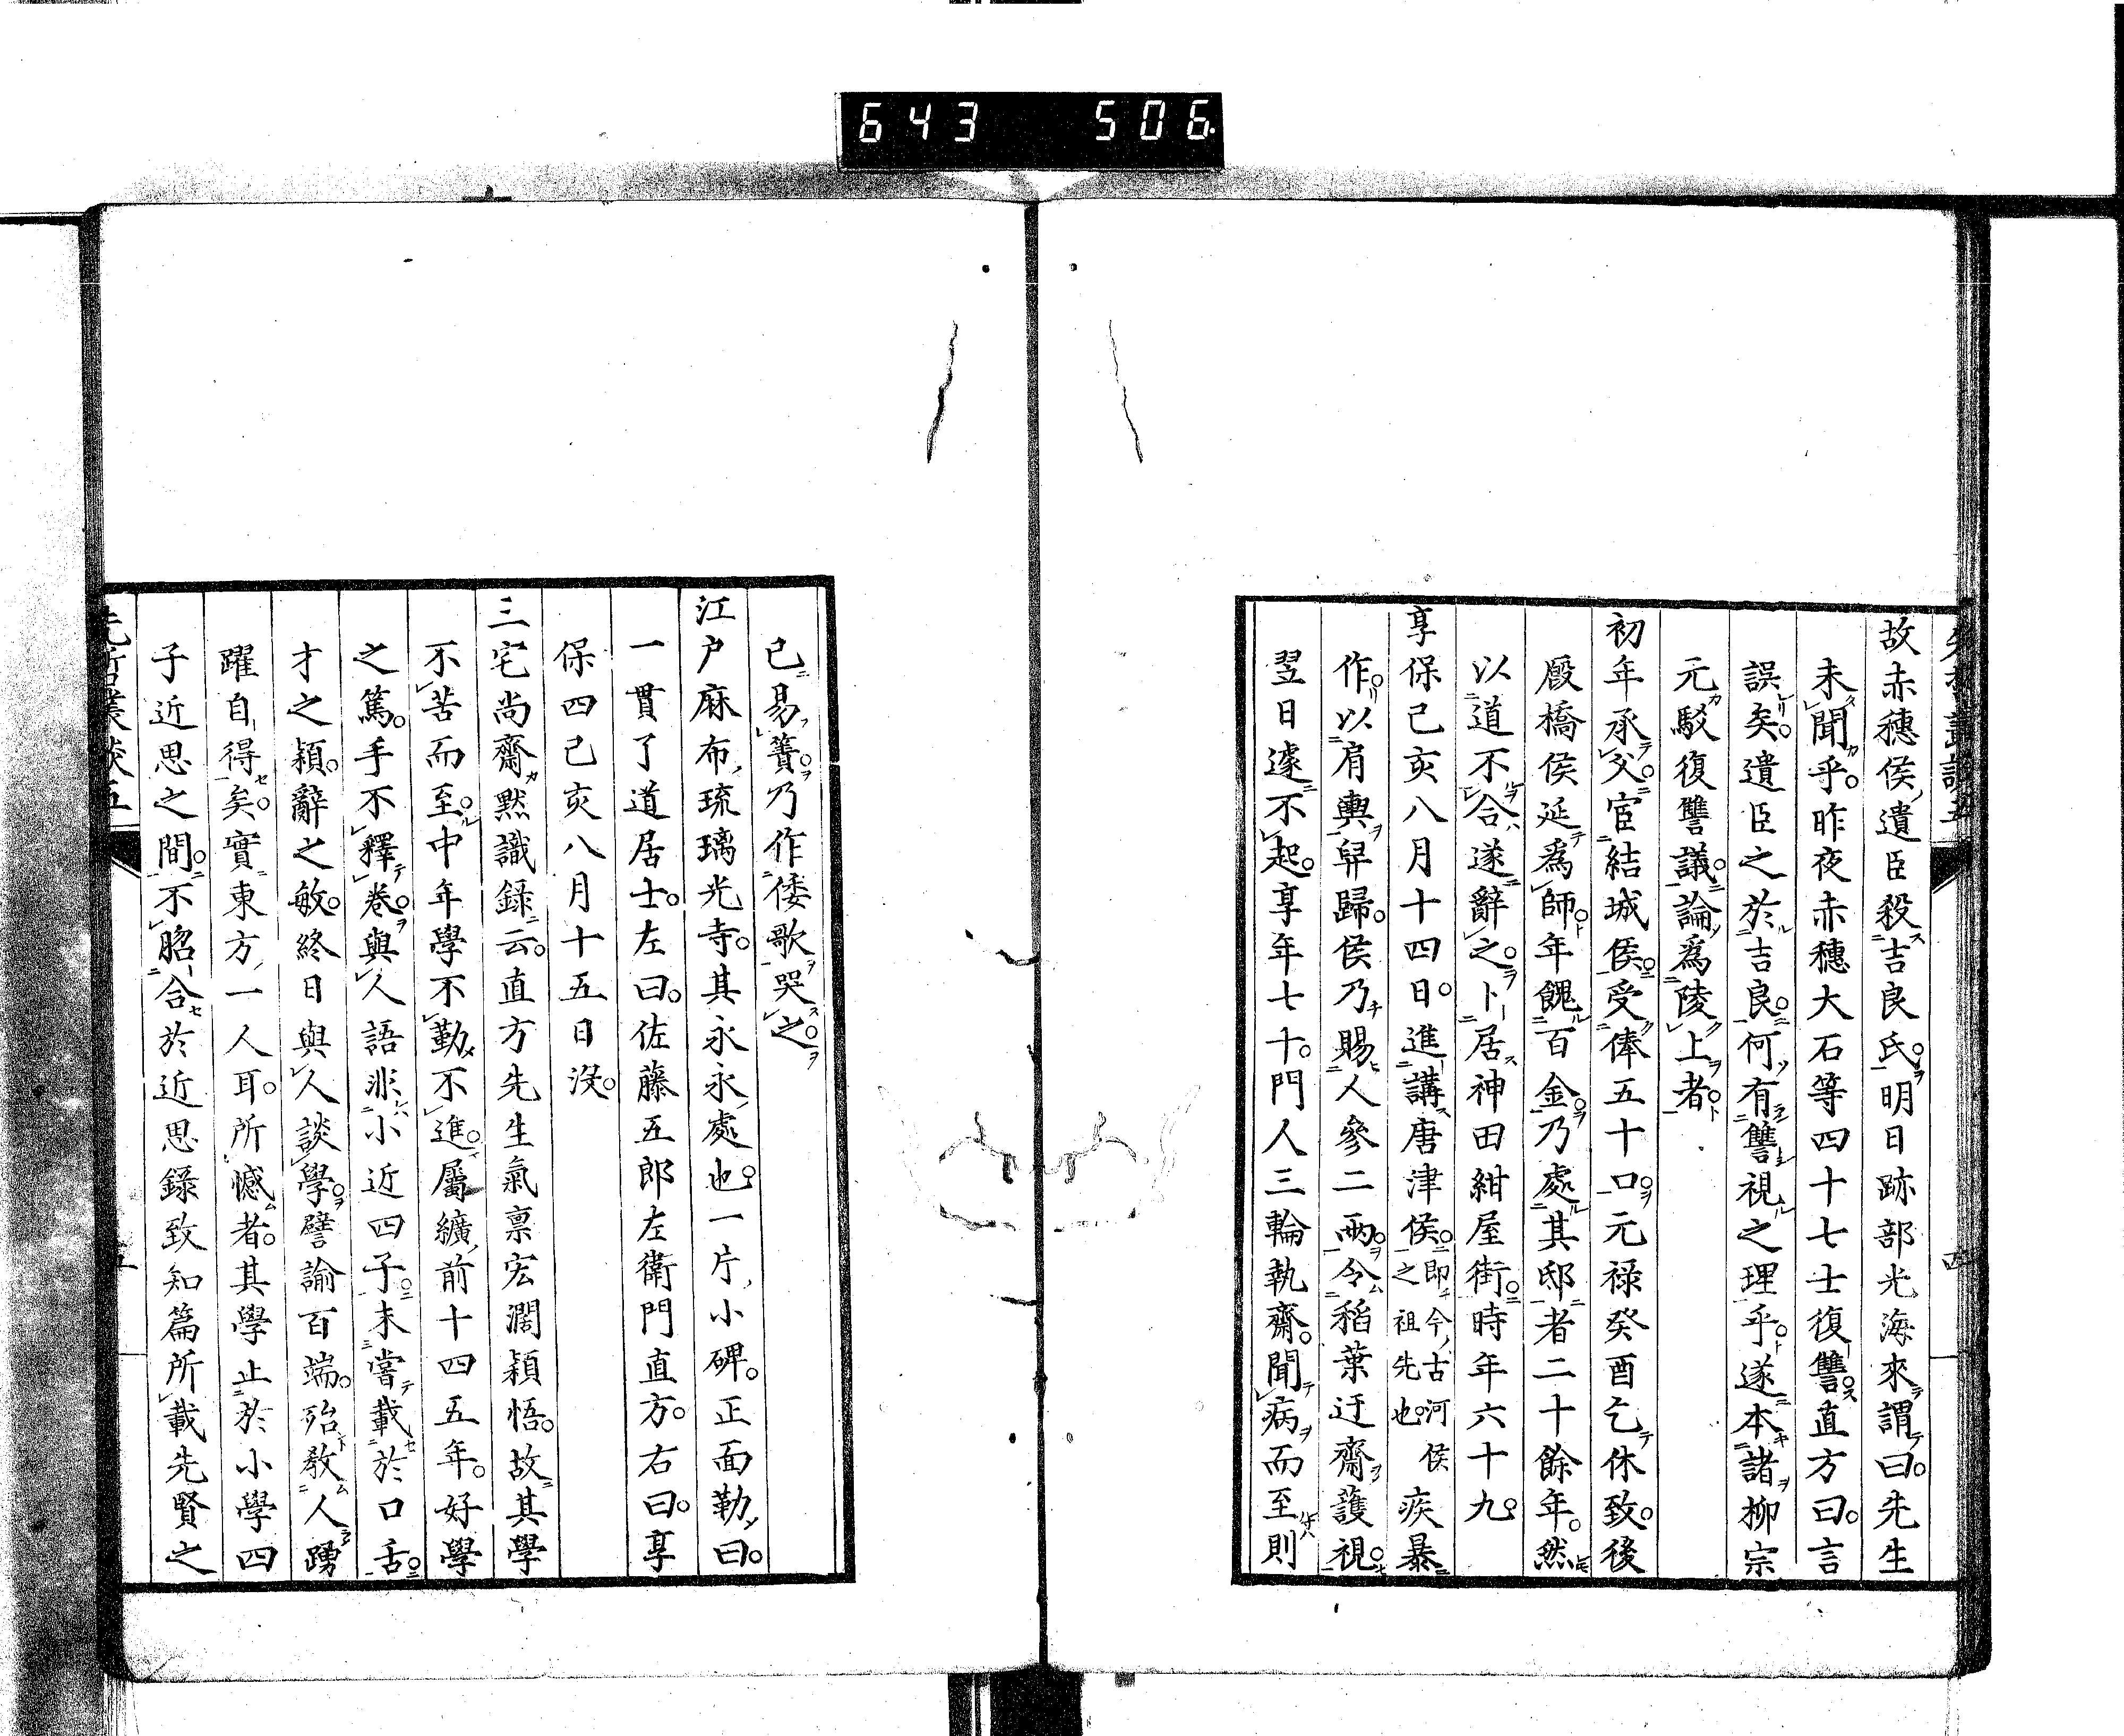 643 506
故赤穗侯遺臣殺吉良氏明日跡部光海來謂曰先生
未聞乎昨夜赤穗大石等四十七士復讐直方曰言
誤矣遺臣之於吉良何有讐視之理乎遂本諸柳宗
元駁復讐議論爲陵上者
初年承父宦結城侯受俸五十口元禄癸酉乞休致後
廐橋侯延爲師年餽百金乃處其邸者二十餘年然
以道不合遂辭之卜居神田紺屋街時年六十九
享保己亥八月十四日進講唐津侯即今古河侯之祖先也疾暴
作以肩輿舁歸侯乃賜人參二兩令稻葉迂齋護視
翌日遽不起享年七十門人三輪執齋聞病而至則
已易簀乃作倭歌哭之
江戸麻布琉璃光寺其永永處也一片小碑正面勒曰
一貫了道居士左曰佐藤五郎左衛門直方右曰享
保四己亥八月十五日没
三宅尚齋默識錄云直方先生氣禀宏濶穎悟故其學
不苦而至中年學不勤不進屬纊前十四五年好學
之篤手不釋卷與人語非小近四子未嘗載於口舌
才之穎辭之敏終日與人談學譬諭百端殆教人踴
躍自得矣實東方一人耳所憾者其學止於小學四
子近思之間不脗合於近思錄致知篇所載先賢之
先哲叢談五
五